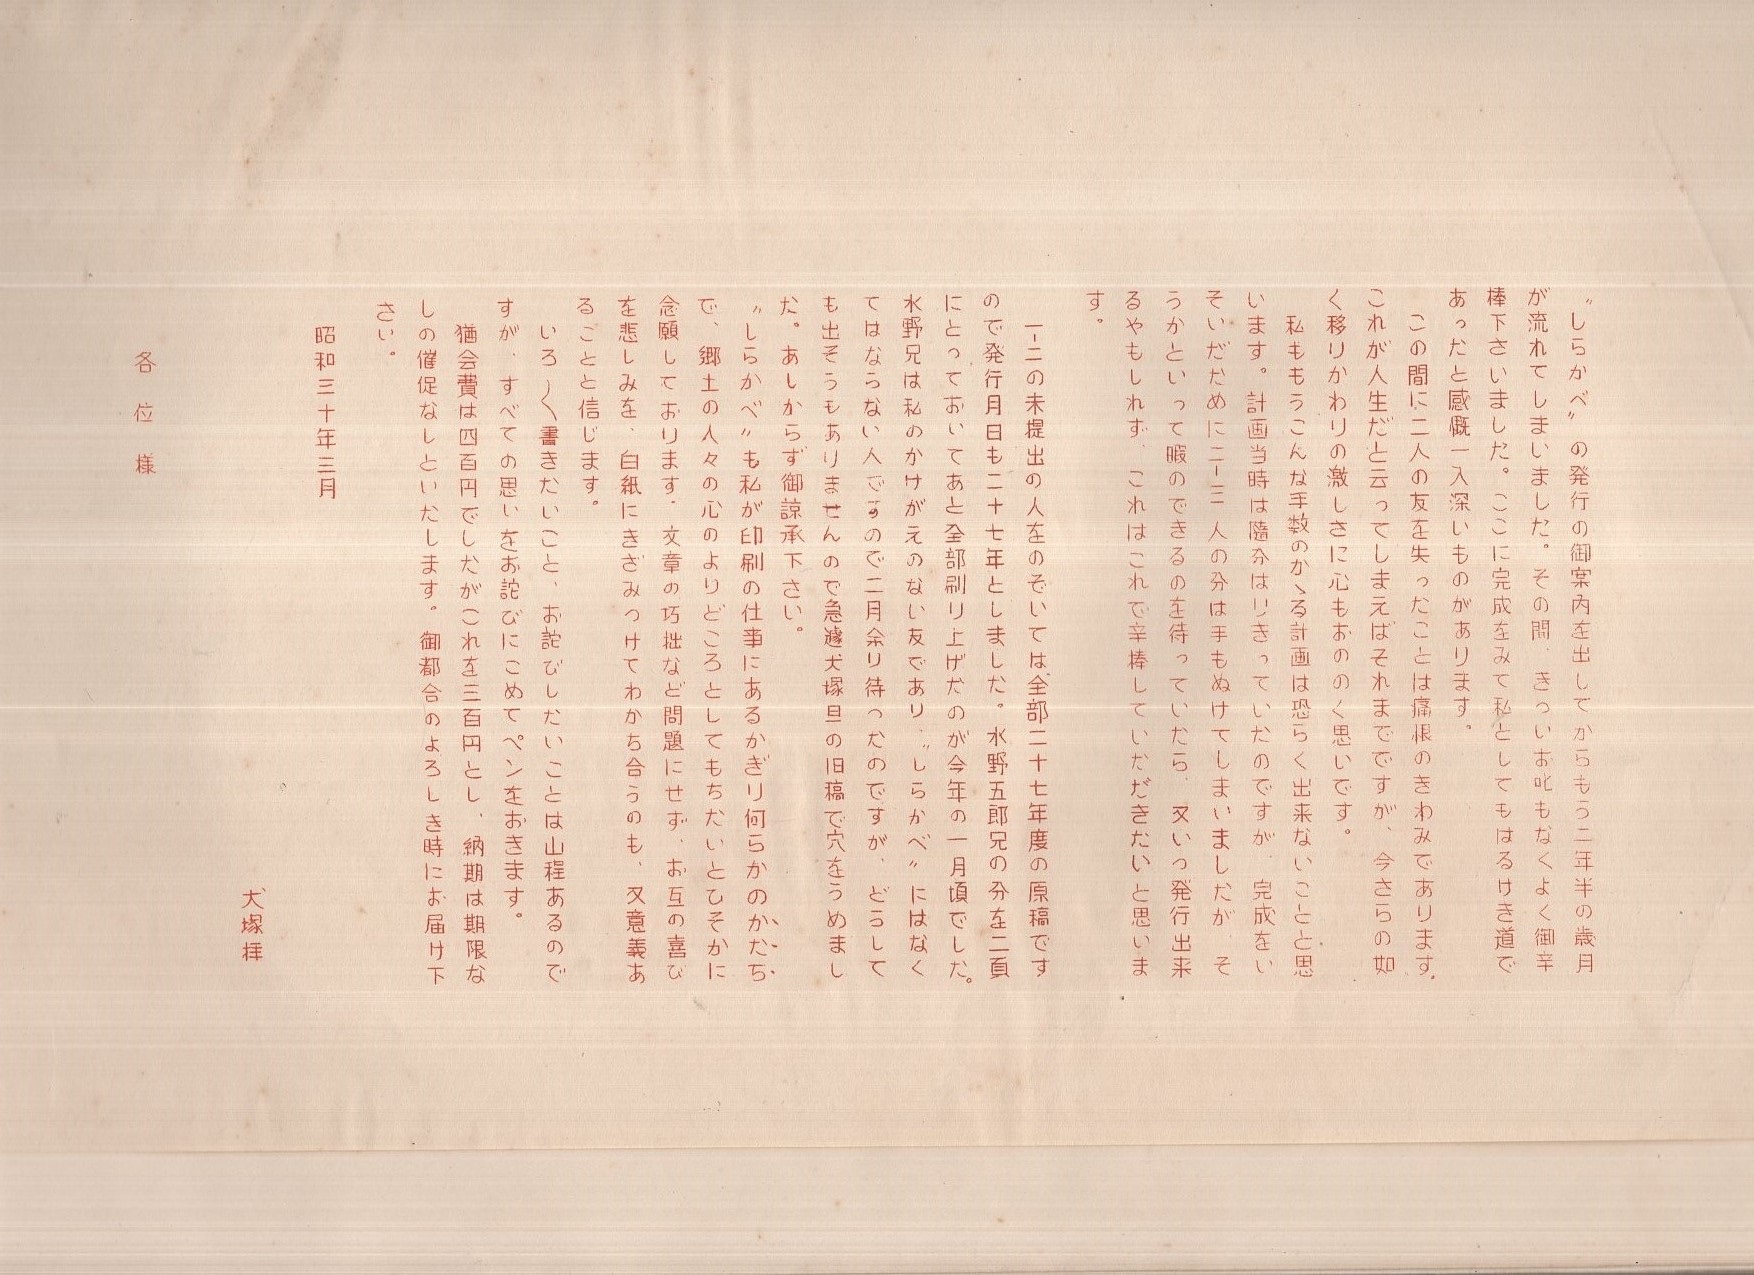 〝しらかべ〟の発行の御案内を出してからもう二年半の歳月
が流れてしまいました。その間、きついお叱もなくよく御辛
棒下さいました。ここに完成をみて私としてもはるけき道で
あったと感慨一入深いものがあります。
この間に二人の友を失ったことは痛恨のきわみであります。
これが人生だと云ってしまえばそれまでですが、今さらの如
く移りかわりの激しさに心もおののく思いです。
私ももうこんな手数のかゝる計画は恐らく出来ないことと思
います。計画当時は随分はりきっていたのですが、完成をい
そいだために二ー三人の分は手もぬけてしまいましたが、そ
うかといって暇のできるのを待っていたら、又いつ発行出来
るやもしれず、これはこれで辛棒していただきたいと思いま
す。
一ー二の未提出の人をのぞいては全部二十七年度の原稿です
ので発行月日も二十七年としました。水野五郎兄の分を二頁
にとっておいてあと全部刷り上げたのが今年の一月頃でした。
水野兄は私のかけがえのない友であり、〝しらかべ〟にはなく
てはならない人ですので二月余り待ったのですが、どうして
も出そうもありませんので急遽犬塚旦の旧稿で穴をうめまし
た。あしからず御諒承下さい。
〝しらかべ〟も私が印刷の仕事にあるかぎり何らかのかたち
で、郷土の人々の心のよりどころとしてもちたいとひそかに
念願しております。文章の巧拙など問題にせず、お互の喜び
を悲しみを、白紙にきざみつけてわかち合うのも、又意義あ
ることと信じます。
いろ〳〵書きたいこと、お詫びしたいことは山程あるので
すが、すべての思いをお詫びにこめてペンをおきます。
猶会費は四百円でしたがこれを三百円とし、納期は期限な
しの催促なしといたします。御都合のよろしき時にお届け下
さい。
昭和三十年三月
犬塚拝
各位様